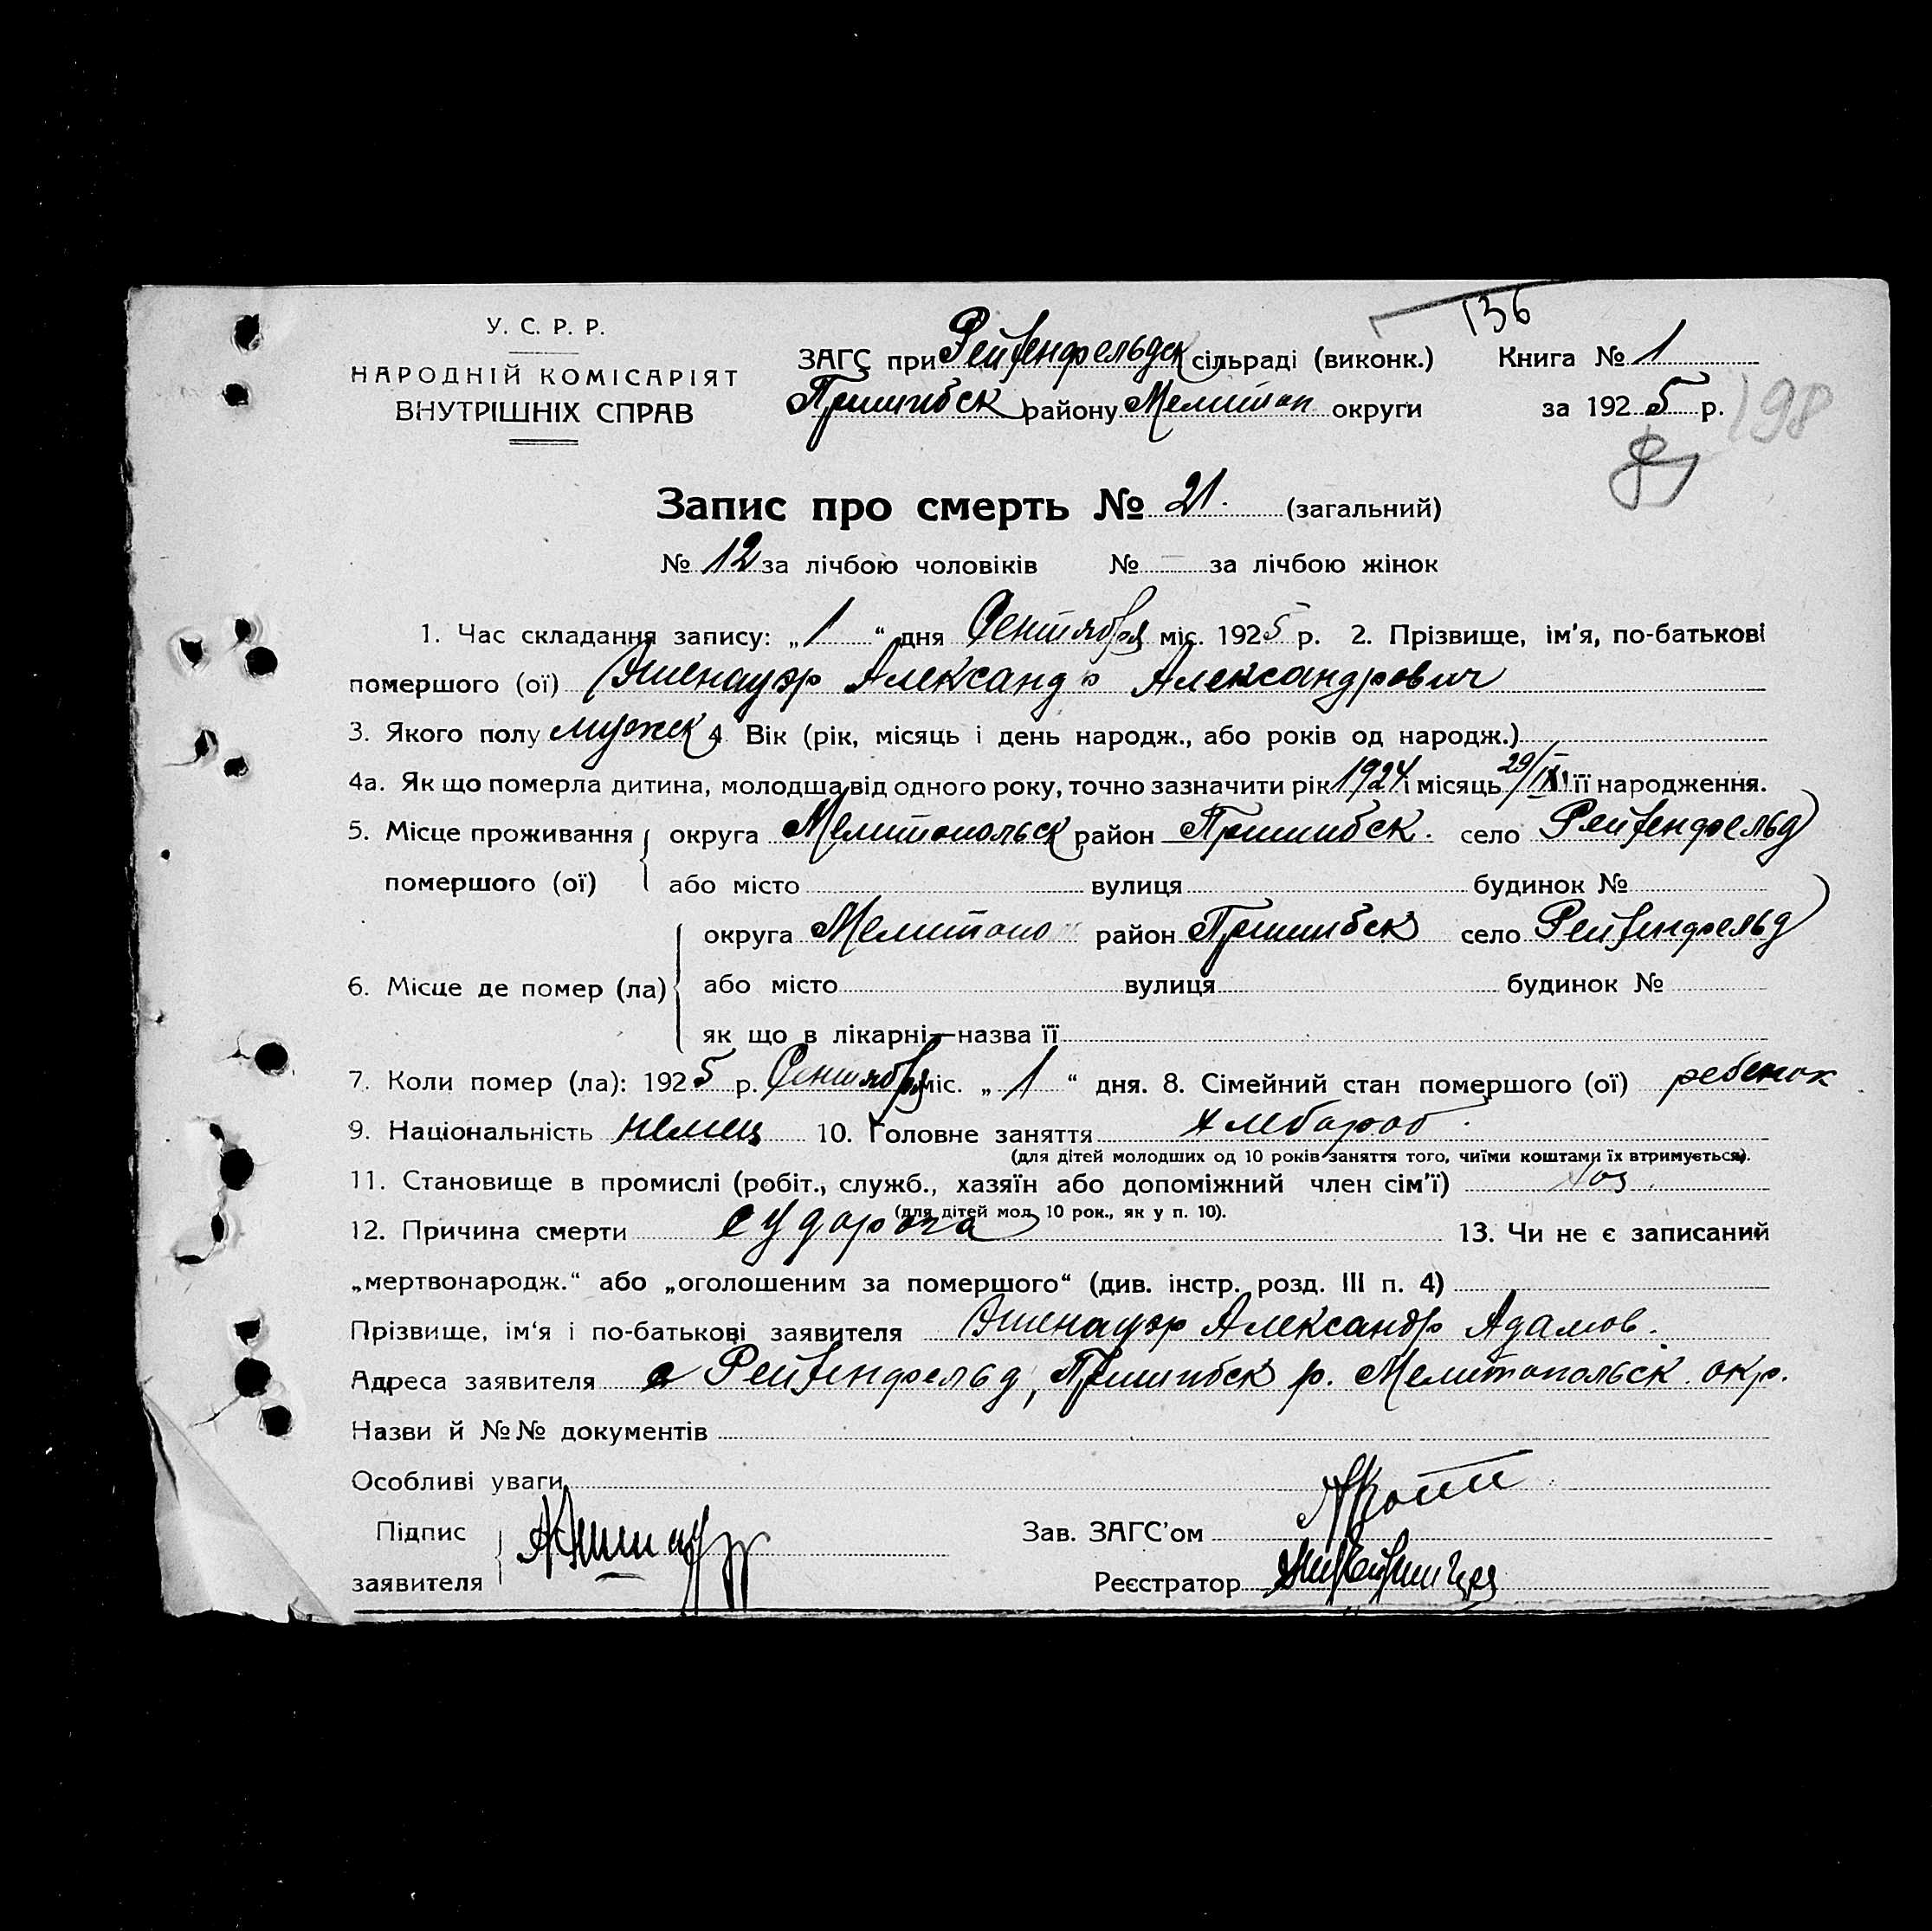 136
У. С. Р. Р.
НАРОДНІЙ КОМІСАРІЯТ
ВНУТРІШНІХ СПРАВ
ЗАГС при Рейхенфельдск сільраді (виконк.) Книга № 1
Пришибск району Мелитоп округи за 1925 р.
198
Запис про смерть № 21. (загальний)
№ 12 за лічбою чоловіків № — за лічбою жінок
1. Час складання запису: „1“ дня Сентября міс. 1925 р. 2. Прізвище, ім'я, по-батькові
помершого (ої) Эшенауэр Александр Александрович
3. Якого полу мужск 4. Вік (рік, місяць і день народж., або років од народж.)
4а. Як що померла дитина, молодша від одного року, точно зазначити рік 1924 і місяць 29/IX її народження.
5. Місце проживання округа Мелитопольск район Пришибск. село Рейхенфельд
помершого (ої) або місто вулиця будинок №
округа Мелитопо район Пришибск село Рейхенфельд
6. Місце де помер (ла) або місто вулиця будинок №
як що в лікарні—назва її
7. Коли помер (ла): 1925 р. Сентября міс. „1“ дня. 8. Сімейний стан помершого (ої) ребенок
9. Національність немец 10. Головне заняття хлебороб
(для дітей молодших од 10 років заняття того, чиїми коштами їх втримується).
11. Становище в промислі (робіт., служб., хазяїн або допоміжний член сім'ї) хоз.
(для дітей мол. 10 рок., як у п. 10).
12. Причина смерти судорога 13. Чи не є записаний
„мертвонародж.“ або „оголошеним за помершого“ (див. інстр. розд. III п. 4)
Прізвище, ім'я і по-батькові заявителя Эшенауэр Александр Адамов.
Адреса заявителя с Рейхенфельд, Пришибск р. Мелитопольск. окр.
Назви й №№ документів
Особливі уваги
Підпис
заявителя
Зав. ЗАГС'ом
Реєстратор